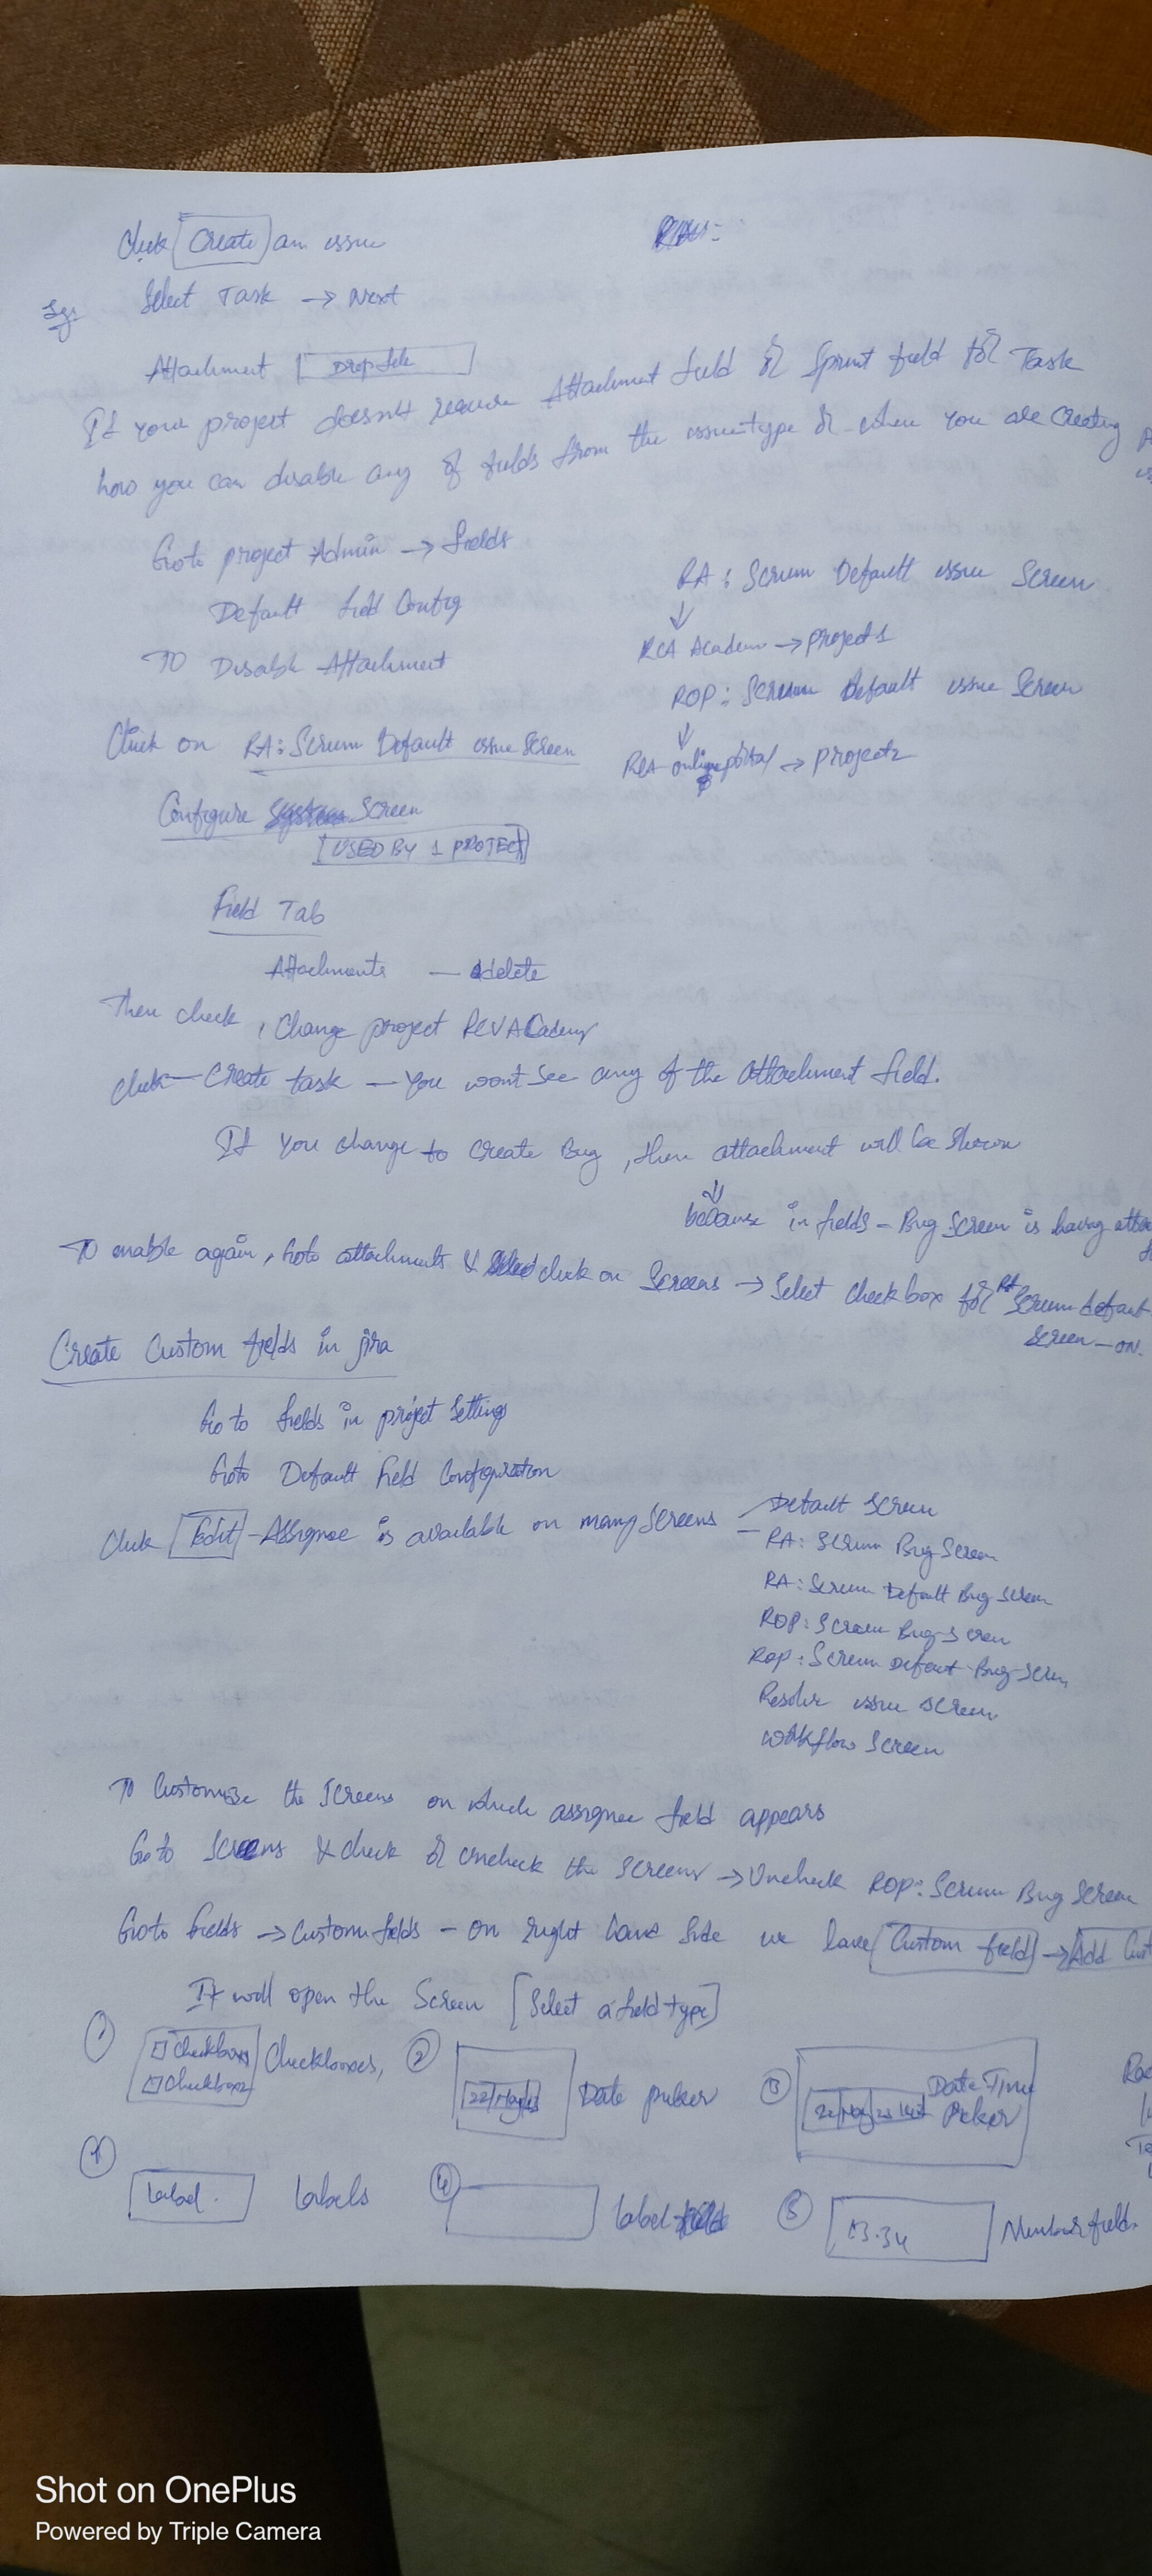 Click Create an issue
Eg:
Select Task → Next
Attachment Drop file
If your project doesnt require Attachment field or Sprint field for Task
how you can disable any of fields from the issuetype or when you are creating
Goto project Admin → fields
Default field Config
TO Disable Attachment
RA : Scrum Default issue Screen
↓
Academy → project 1
ROP : Scrum Default issue Screen
↓
online portal → project 2
Click on RA : Scrum Default issue Screen
Configure Screen
USED BY 1 PROJECT
Field Tab
Attachments — delete
Then check, Change project
click — Create task — You wont see any of the attachment field.
If You change to Create Bug, then attachment will be shown
↓
because in fields - Bug Screen is having
To enable again, Goto attachments & click on Screens → Select checkbox for RA Scrum default
Screen — on.
Create Custom fields in jira
Go to fields in project Settings
Goto Default Field Configuration
Click Edit - Assignee is available on many Screens
Default Screen
RA : Scrum Bug Screen
RA : Scrum Default Bug Screen
ROP : Scrum Bug Screen
ROP : Scrum Default Bug Screen
Resolve issue screen
Workflow Screen
To Customize the Screens on which assignee field appears
Go to Screens & check or uncheck the screens → Uncheck ROP : Scrum Bug Screen
Goto fields → Custom fields - on right hand Side we have Custom field → Add
It will open the Screen [Select a field type]
① Checkbox1 Checkbox2 Checkboxes, ② 22 May 23 Date picker ③ Date Time Picker
Label. Labels ④ Label ⑤ Number field.
Shot on OnePlus
Powered by Triple Camera